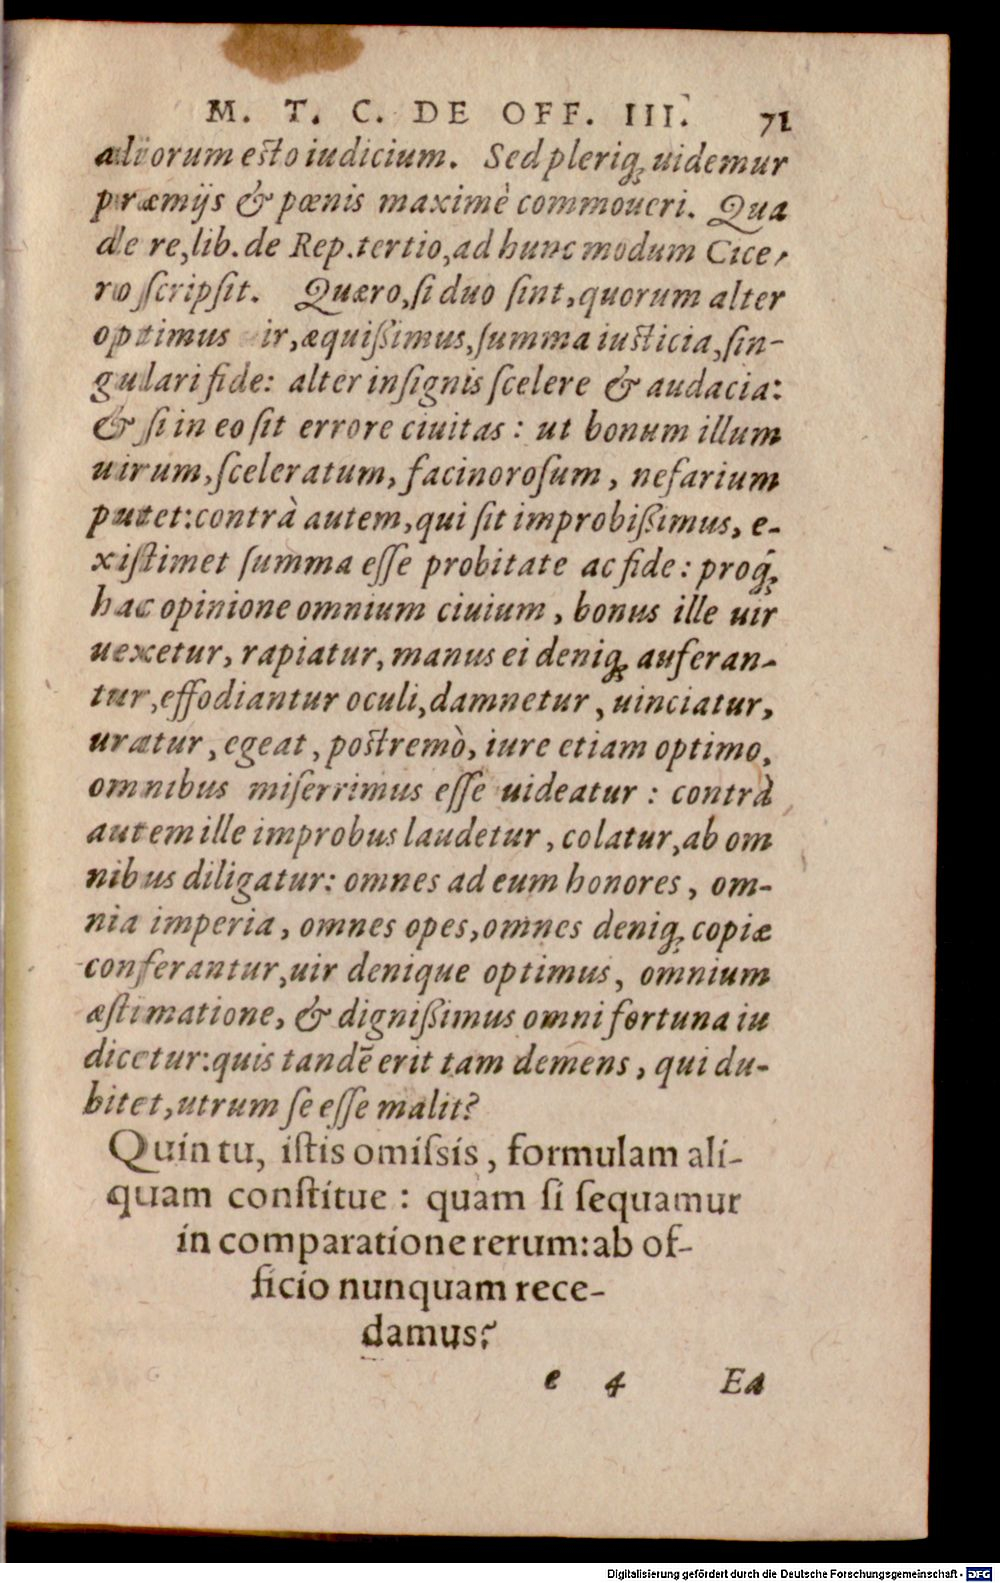 M. T. C. DE OFF. III. 71
aliorum esto iudicium. Sed pleriq; uidemur
præmijs & pœnis maximè commoueri. Qua
de re, lib. de Rep. tertio, ad hunc modum Cice-
ro ſcripſit. Quæro, ſi duo ſint, quorum alter
optimus uir, æquißimus, ſumma iuſticia, ſin-
gulari fide: alter inſignis ſcelere & audacia:
& ſi in eo ſit errore ciuitas: ut bonum illum
uirum, ſceleratum, facinoroſum, nefarium
putet: contrà autem, qui ſit improbißimus, e-
xiſtimet ſumma eſſe probitate ac fide: proq́;
hac opinione omnium ciuium, bonus ille uir
uexetur, rapiatur, manus ei deniq; auferan-
tur, effodiantur oculi, damnetur, uinciatur,
uratur, egeat, poſtremò, iure etiam optimo,
omnibus miſerrimus eſſe uideatur: contrà
autem ille improbus laudetur, colatur, ab om
nibus diligatur: omnes ad eum honores, om-
nia imperia, omnes opes, omnes deniq; copiæ
conferantur, uir denique optimus, omnium
æſtimatione, & dignißimus omni fortuna iu
dicetur: quis tandē erit tam demens, qui du-
bitet, utrum ſe eſſe malit?
Quin tu, iſtis omiſsis, formulam ali-
quam conſtitue: quam ſi ſequamur
in comparatione rerum: ab of-
ficio nunquam rece-
damus?
e 4 Ea
Digitalisierung gefördert durch die Deutsche Forschungsgemeinschaft - DFG